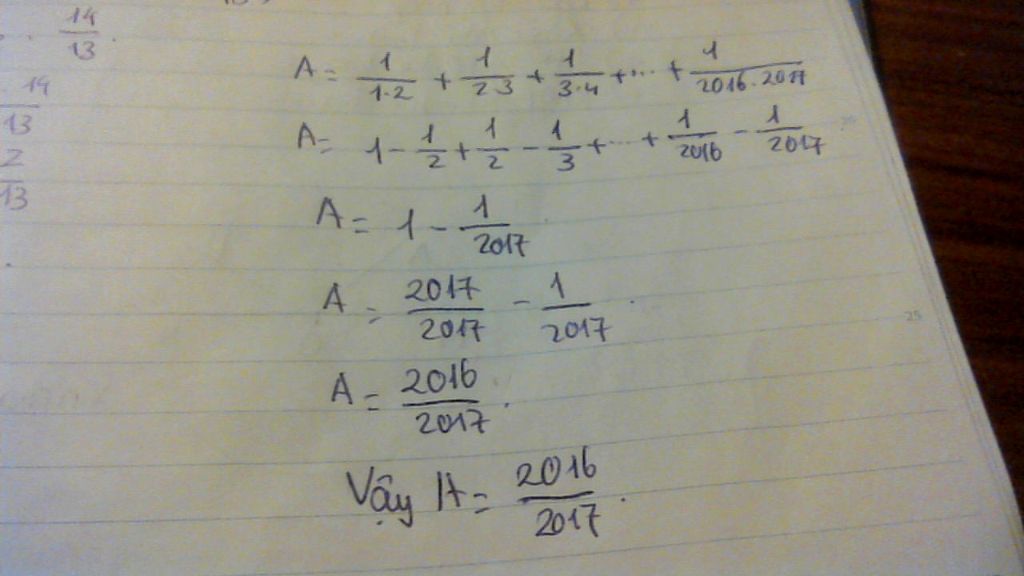 .. 14/13.
. 14
13
2
13
A = 1/1·2 + 1/2·3 + 1/3·4 + ... + 1/2016.2017
A = 1 - 1/2 + 1/2 - 1/3 + ... + 1/2016 - 1/2017
A = 1 - 1/2017
A = 2017/2017 - 1/2017
25
A = 2016/2017.
Vậy A = 2016/2017.